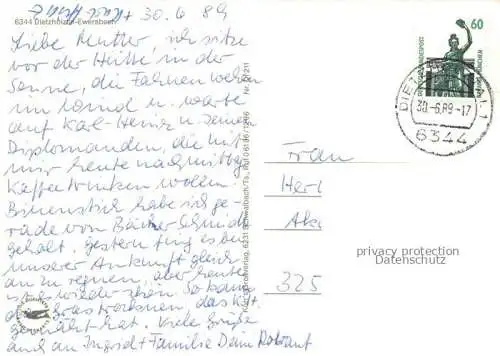 6344 Dietzhölztal-Ewersbach
30.6.89
Liebe Mutter, ich sitze
vor der Hütte in der
Sonne, die Fahnen wehen
im Wind u. warte
auf Karl-Heinz u. seinen
Diplomanden, die mit
mir heute nachmittag
Kaffeetrinken wollen.
Bienenstich habe ich ge-
rade von Bäcker Schmidt
geholt. Gestern fing es bei
unserer Ankunft gleich
an zu regnen, aber heute
ist's wieder schön. So kann
das Gras trocknen, das K.H.
gemäht hat. Viele Grüße
auch an Ingrid + Familie Dein
60
DEUTSCHE BUNDESPOST
MÜNCHEN
30.-6.89-17
6344
Frau
Her
Ak
325
privacy protection
Datenschutz